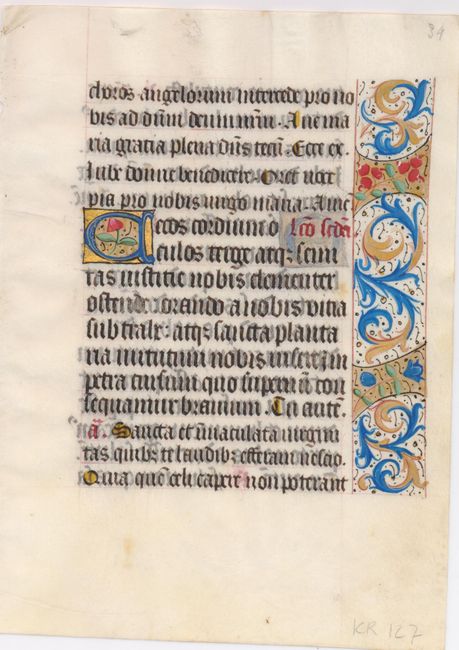 34
choros angelorum intercede pro no
bis ad dnm deum nrm. Aue ma
ria gratia plena dns tecu. Ecce ex.
Iube domne benedicere.
pia pro nobis virgo maria. Ame
Cecos cordium o lco scda
culos terge atqz semi
tas iustitie nobis clementer
ostende orando a nobis vitia
subtrahe: atqz sancta planta
ria virtutum nobis insere: in
petra
sequamur brauium. Tu aute.
Sancta et immaculata virgini
tas quibz te laudibz efferam nescio.
Quia que celi capere non poterant
KR 127